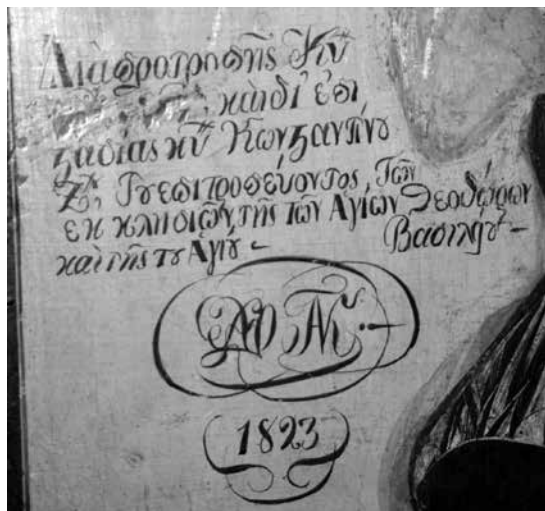 Διὰ προτροπῆς Κῦ
καὶ δι' ἐπι
ϛασίας κῦ Κωνϛαντίνȣ
Ζ; Τȣ ἐπιτροπεύοντος, Τῶν
ἐκκλησιῶν, τῆς τῶν Ἁγίων Θεοδώρων
καὶ τῆς τȣ Ἁγίȣ - Βασιλείȣ -
1823